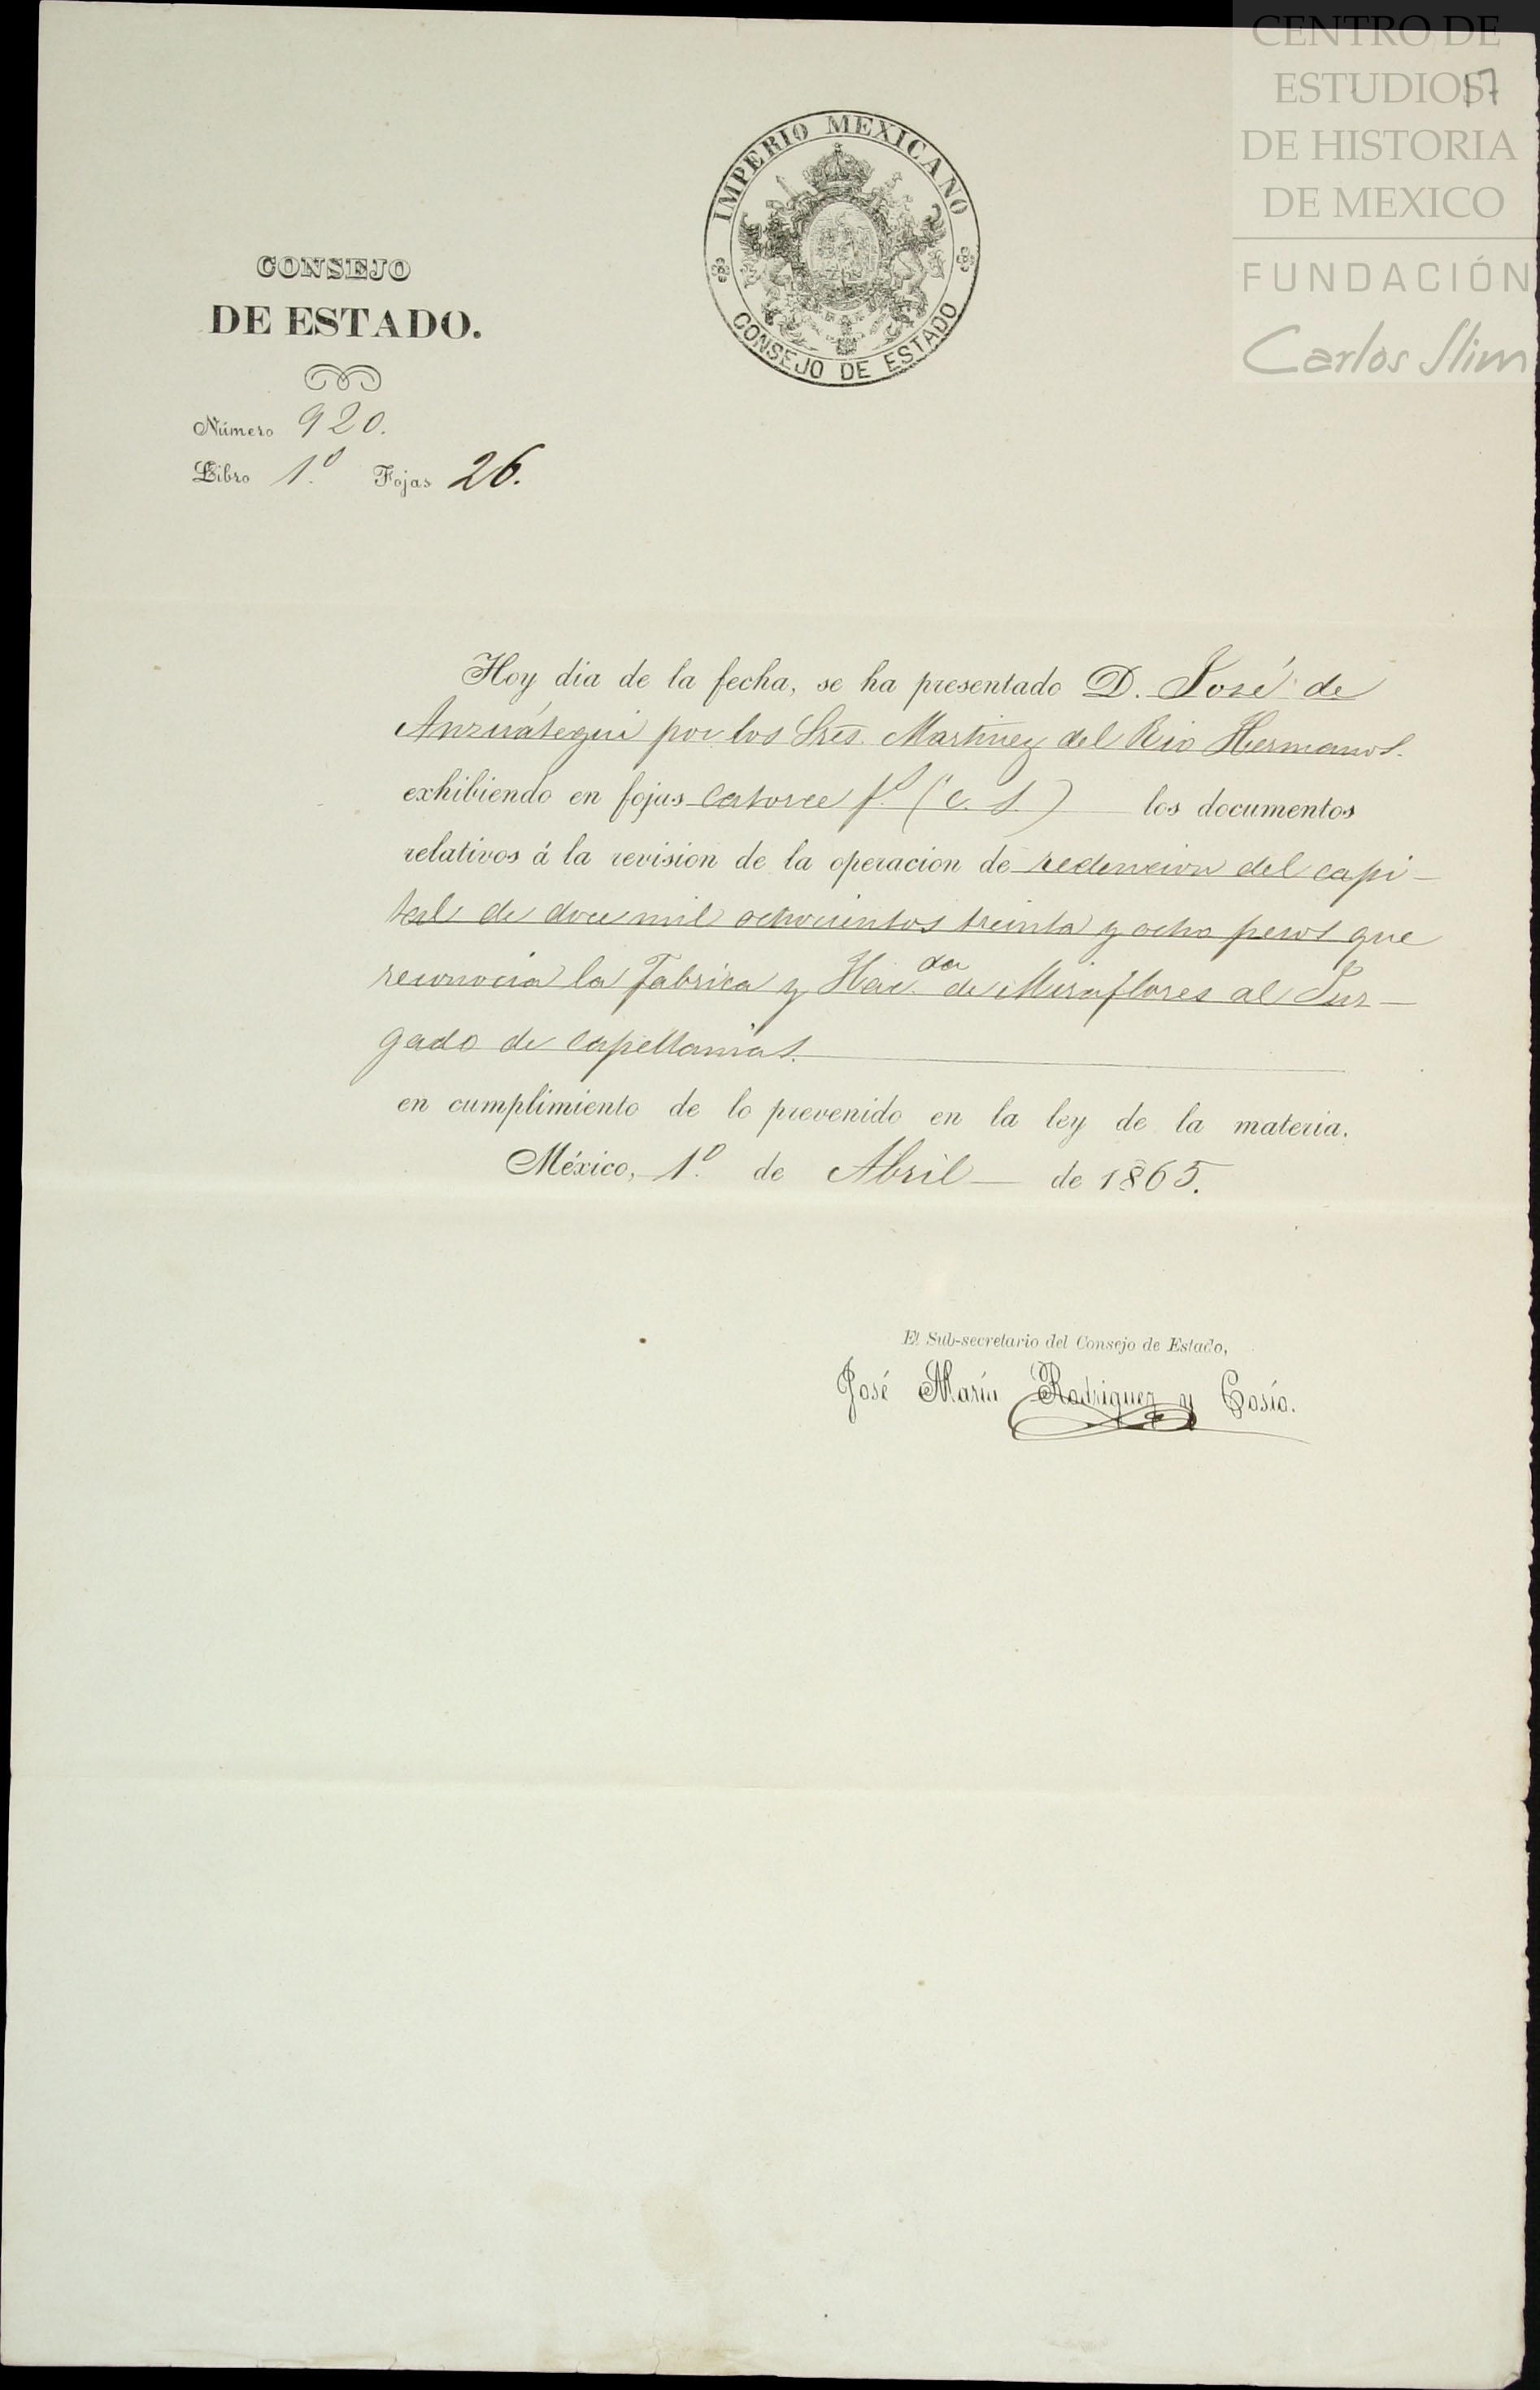 CENTRO DE
ESTUDIOS
DE HISTORIA
DE MEXICO
FUNDACIÓN
Carlos Slim
17
IMPERIO MEXICANO
CONSEJO DE ESTADO
CONSEJO
DE ESTADO.
Número 920.
Libro 1º Fojas 26.
Hoy dia de la fecha, se ha presentado D. José de
Anzuátegui por los Sres. Martinez del Rio Hermanos.
exhibiendo en fojas catorce fs. (c. s.) los documentos
relativos á la revision de la operacion de redencion del capi-
tal de doce mil ochocientos treinta y ocho pesos que
reconocia la Fabrica y Hac.da de Miraflores al Juz-
gado de Capellanias.
en cumplimiento de lo prevenido en la ley de la materia.
México, 1º de Abril de 1865.
El Sub-secretario del Consejo de Estado,
José María Rodriguez y Cosío.